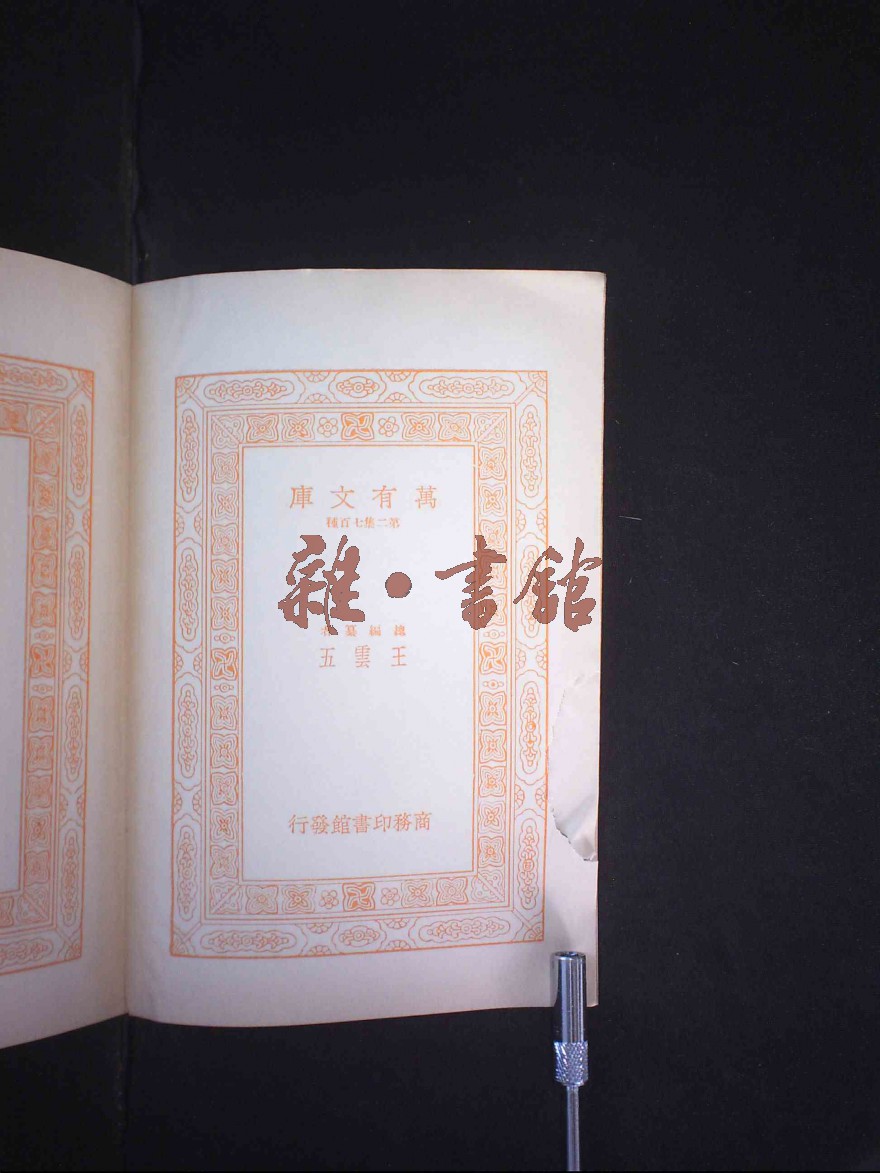 萬有文庫
第二集七百種
雜·書館
總編纂者
王雲五
商務印書館發行